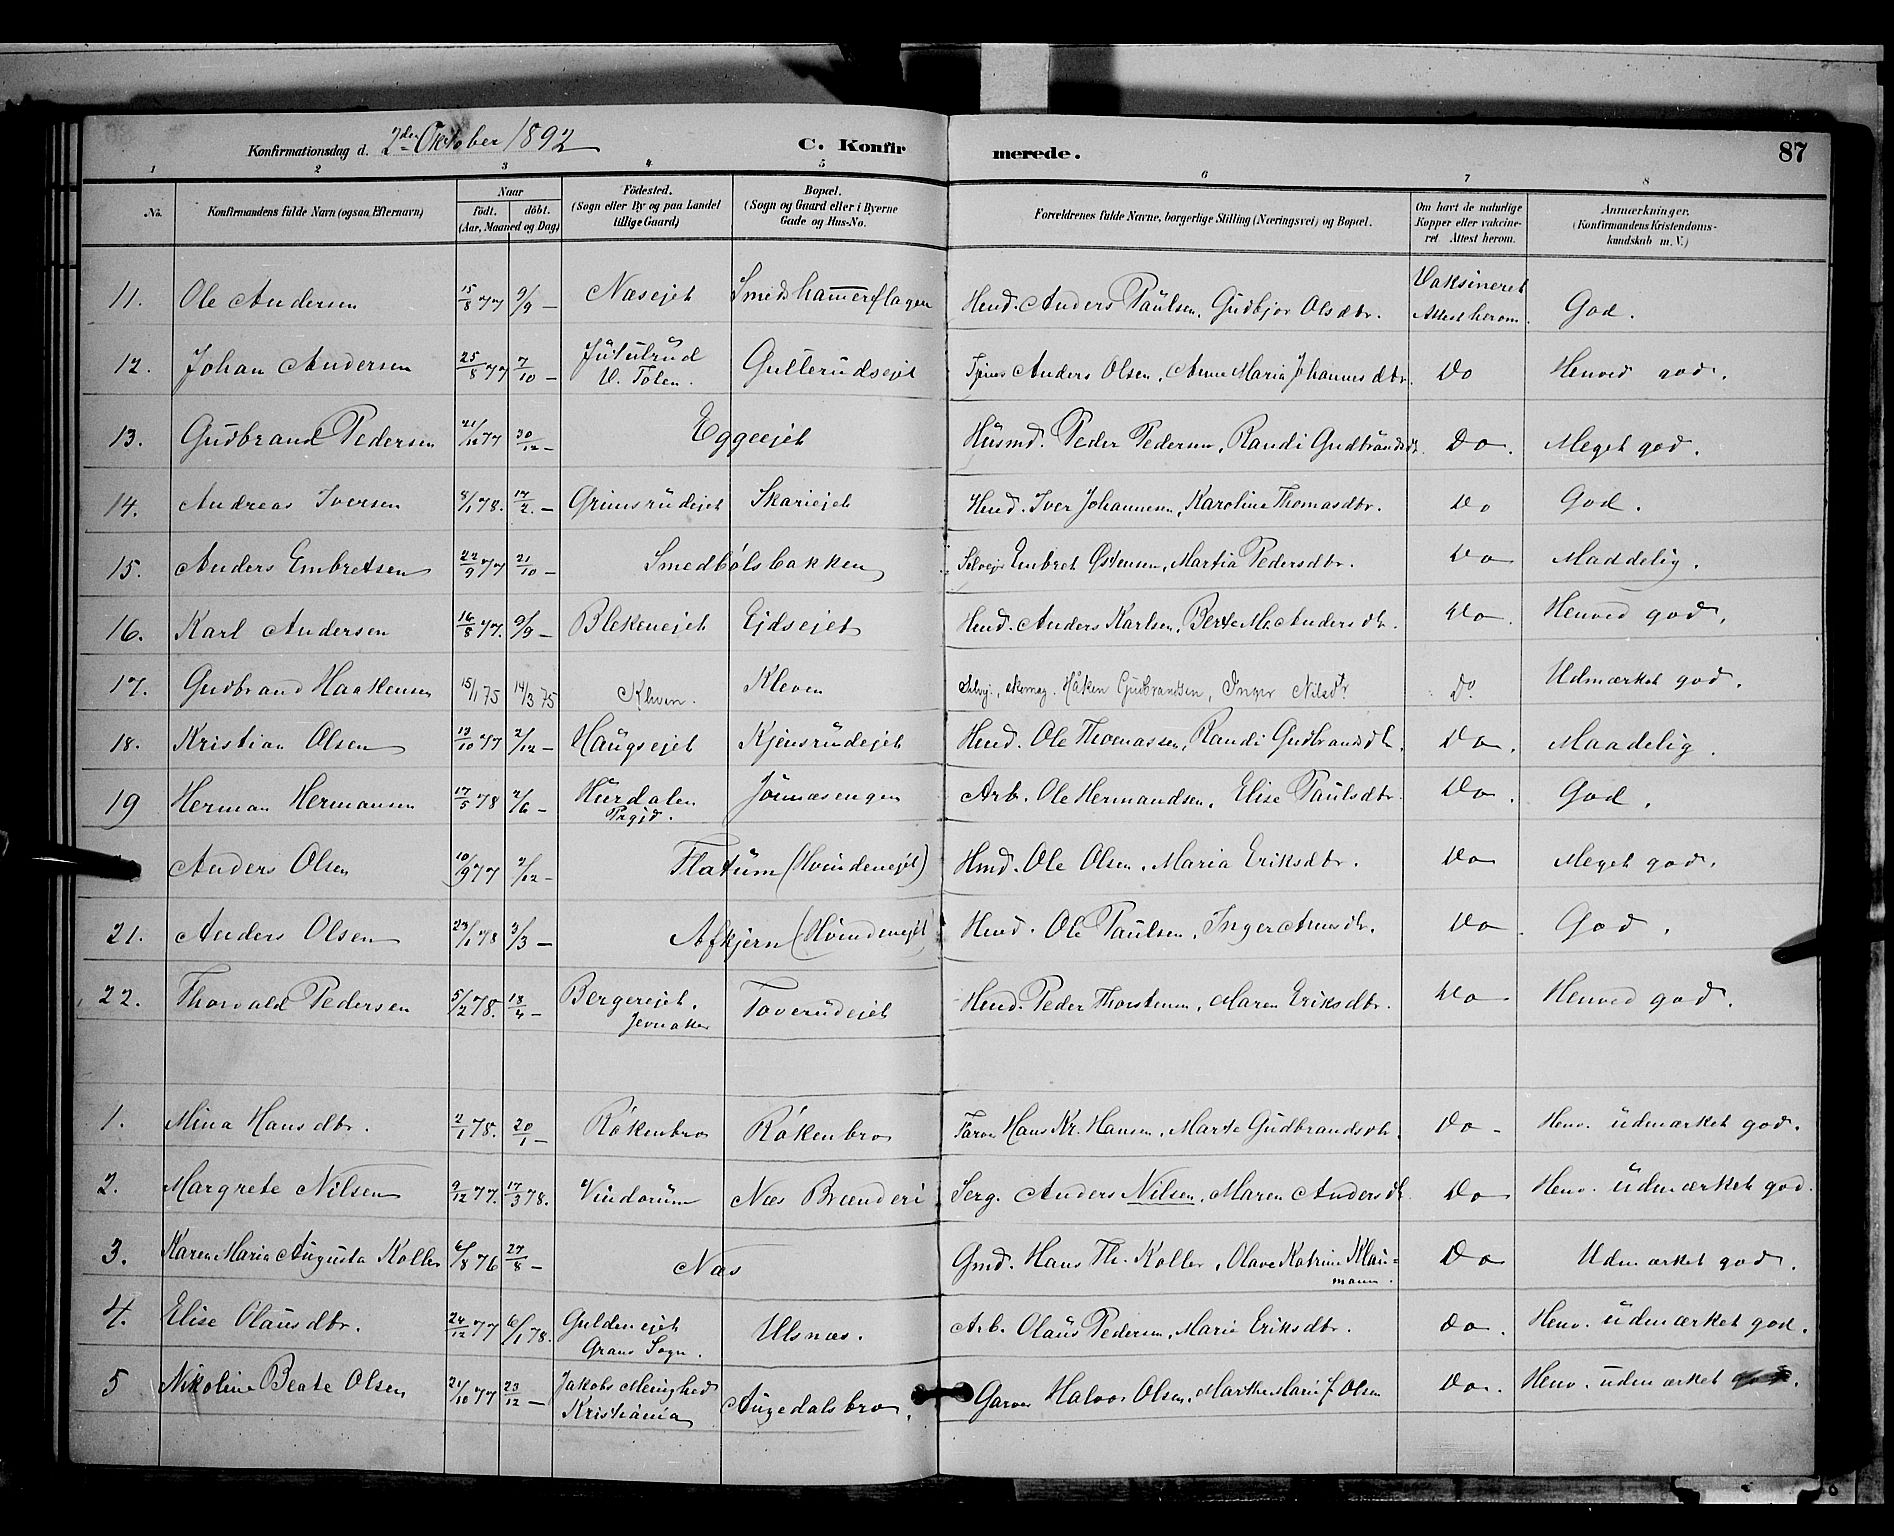 Konfirmationsdag d. 2den Oktober 1892
C. Konfirmerede.
87
1 2 3 4 5 6 7 8
No. Konfirmandens fulde Navn (ogsaa Efternavn) Naar födt. döbt. (Aar, Maaned og Dag) Födested. (Sogn eller By og paa Landet tillige Gaard) Bopæl. (Sogn og Gaard eller i Byerne Gade og Hus-No. Forældrenes fulde Navne, borgerlige Stilling (Næringsvei) og Bopæl. Om havt de naturlige Kopper eller vakcineret Attest herom. Anmærkninger. (Konfirmandens Kristendomskundskab m. V.)
11. Ole Andersen 15/8 77 9/9 — Næsejet Smedshammerflagen Hmd. Anders Paulsen, Gudbjør Olsdtr. Vaksineret Attest herom God.
12. Johan Andersen 25/8 77 7/10 — Jutulrud V. Toten. Gullerudsejet Anders Olsen, Anne Maria Johannesdtr. Do Henved god.
13. Gudbrand Pedersen 21/10 77 30/12 — Eggeejet Husmd. Peder Pedersen, Randi Gudbrandsdt. Do. Meget god.
14. Andreas Iversen 8/1 78. 17/2 — Grimsrudejet Skariejet Hmd. Iver Johannesen, Karoline Thomasdtr. Do God.
15. Anders Embretsen 22/9 77 21/10 — Smedbölsbakken Selvej. Embret Østensen, Martia Pedersdtr. Do Maddelig.
16. Karl Andersen 16/8 77. 9/9 — Blekenejet Ejdsejet Hmd. Anders Karlsen, Berte M. Andersdtr. Do. Henved god.
17. Gudbrand Haakensen 15/1 75 14/3 75 Kleven. Kleven Selvej., skomag. Håken Gudbrandsen, Inger Nilsdtr Do. Udmærket god.
18. Kristian Olsen 13/10 77 2/12 — Haugsejet Kjensrudejet Hmd. Ole Thomassen, Randi Gudbrandsdtr. Do. Maadelig.
19 Herman Hermansen 17/5 78 2/6 — Hurdalen Prgjd. Arb. Ole Hermandsen, Elise Paulsdtr. Do. God.
Anders Olsen 10/9 77 2/12 — Flatum (Hvindenejet) Hmd. Ole Olsen, Maria Eriksdtr. Do Meget god.
21. Anders Olsen 23/1 78 3/3 — Afkjern (Hvindenejet) Hmd. Ole Paulsen, Inger Arnesdtr. Do. God.
22. Thorvald Pedersen 5/2 78. 18/4 — Bergerejet. Jevnaker Toverudejet Hmd. Peder Thorstensen, Maren Eriksdtr. Do Henved god.
1. Mina Hansdtr. 2/1 78. 20/1 — Rökenbro Rökenbro Farver Hans Kr. Hansen, Marte Gudbrandsdtr. Do Henv. udmærket god.
2. Margrete Nilsen 2/12 77. 17/3 78. Vindorum Næs Brænderi Serg. Anders Nilsen, Maren Andersdtr. Do Henv. udmærket god.
3. Karen Maria Augusta Koller 6/8 76 27/8 — Næs Gmd. Hans Th. Koller, Olave Katrine Klaumann. Do Udmærket god.
4. Elise Olausdtr. 24/12 77 6/1 78. Guldenejet Grans Sogn. Ulsnæs. Arb. Olaus Pedersen, Marie Eriksdtr. Do. Henv. udmærket god.
5 Nikoline Beate Olsen 21/10 77 23/12 — Jakobs Menighed Kristiania Augedalsbro. Garver Halvor Olsen, Marthe Marie J Olsen Do. Henv. udmærket god.